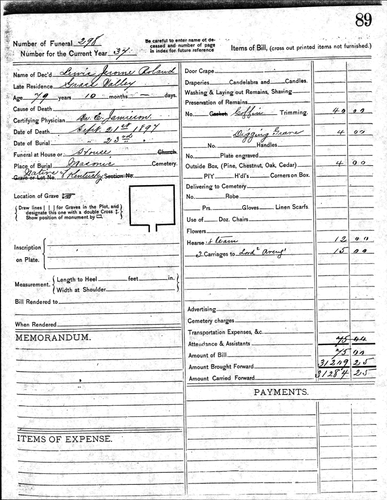 89
Number of Funeral 298
Number for the Current Year 34
Be careful to enter name of deceased and number of page in index for future reference
Items of Bill, (cross out printed items not furnished.)
Name of Dec'd Lewis Jerome Roland
Late Residence Grass Valley
Age 79 10 months - days.
Cause of Death
Certifying Physician W. C. Jamieson
Date of Death Sept 21st 1897
Date of Burial " 23rd "
Funeral at House or Church.
Place of Burial Masonic Cemetery.
Native of Kentucky
Grave or Lot No. Section No.
Location of Grave
Draw lines for Graves in the Plot, and designate this one with a double Cross
Show position of monument by
Inscription on Plate.
Measurement. Length to Heel feet in.
Width at Shoulder
Bill Rendered to
When Rendered
MEMORANDUM.
ITEMS OF EXPENSE.
Door Crape
Draperies Candelabra and Candles.
Washing & Laying out Remains, Shaving
Preservation of Remains
No. Casket Coffin Trimming. 40 00
Digging Grave 4 00
No. Handles
Plate engraved
Outside Box, (Pine, Chestnut, Oak, Cedar) 4 00
P'l'y H'd's Corners on Box.
Delivering to Cemetery
No. Robe
Prs. Gloves Linen Scarfs
Use of Doz. Chairs
Flowers
Hearse & team 12 00
3 Carriages to 15 00
Advertising
Cemetery charges
Transportation Expenses, &c
Attendance & Assistants 75 00
Amount of Bill 75 00
Amount Brought Forward 31209 25
Amount Carried Forward 31284 25
PAYMENTS.